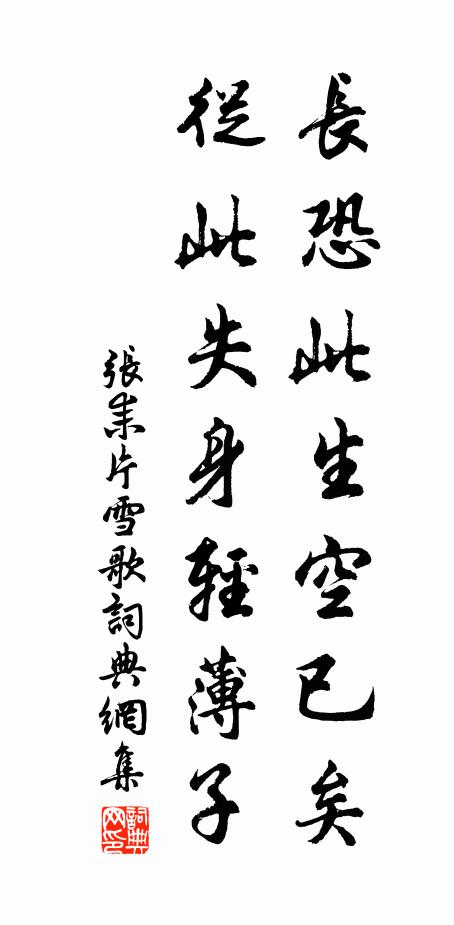 長恐此生空已矣
從此失身輕薄子
張耒片雪歌詞典網集
詞典網印